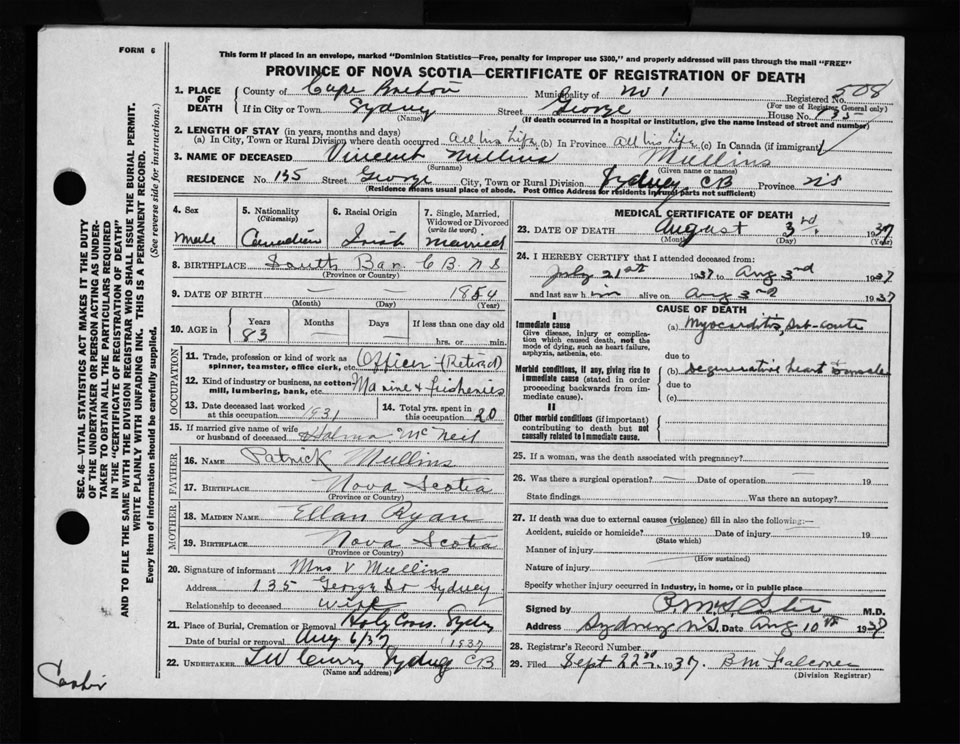 FORM 6
This form if placed in an envelope, marked "Dominion Statistics—Free, penalty for improper use $300," and properly addressed will pass through the mail "FREE"
PROVINCE OF NOVA SCOTIA—CERTIFICATE OF REGISTRATION OF DEATH
SEC. 46—VITAL STATISTICS ACT MAKES IT THE DUTY
OF THE UNDERTAKER OR PERSON ACTING AS UNDER-
TAKER TO OBTAIN ALL THE PARTICULARS REQUIRED
IN THE "CERTIFICATE OF REGISTRATION OF DEATH"
AND TO FILE THE SAME WITH THE DIVISION REGISTRAR WHO SHALL ISSUE THE BURIAL PERMIT.
WRITE PLAINLY WITH UNFADING INK. THIS IS A PERMANENT RECORD.
Every item of information should be carefully supplied. (See reverse side for instructions.)
1. PLACE OF DEATH County of Cape Breton Municipality of No 1 Registered No. 508
(For use of Registrar General only)
If in City or Town Sydney Street George House No. 135
(Name) (If death occurred in a hospital or institution, give the name instead of street and number)
2. LENGTH OF STAY (in years, months and days)
(a) In City, Town or Rural Division where death occurred All his Life (b) In Province All his Life (c) In Canada (if immigrant)
3. NAME OF DECEASED Vincent Mullins Mullins
(Surname) (Given name or names)
RESIDENCE No. 135 Street George City, Town or Rural Division Sydney, CB Province NS
(Residence means usual place of abode. Post Office Address for residents in rural parts not sufficient)
4. Sex 5. Nationality 6. Racial Origin 7. Single, Married,
(Citizenship) Widowed or Divorced
(write the word)
Male Canadian Irish Married
8. BIRTHPLACE South Bar C B N S
(Province or Country)
9. DATE OF BIRTH — — 1854
(Month) (Day) (Year)
10. AGE in Years Months Days If less than one day old
83 — — hrs. or min.
OCCUPATION
11. Trade, profession or kind of work as Officer (Retired)
spinner, teamster, office clerk, etc.
12. Kind of industry or business, as cotton Marine & fisheries
mill, lumbering, bank, etc.
13. Date deceased last worked at this occupation 1931 14. Total yrs. spent in this occupation 20
15. If married give name of wife
or husband of deceased McNeil
FATHER
16. NAME Patrick Mullins
17. BIRTHPLACE Nova Scotia
(Province or Country)
MOTHER
18. MAIDEN NAME Ellan Ryan
19. BIRTHPLACE Nova Scotia
(Province or Country)
20. Signature of informant Mrs V Mullins
Address 135 George St Sydney
Relationship to deceased wife
21. Place of Burial, Cremation or Removal Holy Cross. Sydney
Date of burial or removal Aug 6/37 1937
22. UNDERTAKER Curry Sydney CB
(Name and address)
MEDICAL CERTIFICATE OF DEATH
23. DATE OF DEATH August 3rd 1937
(Month) (Day) (Year)
24. I HEREBY CERTIFY that I attended deceased from:
July 21st 1937 to Aug 3rd 1937
and last saw him alive on Aug 3rd 1937
CAUSE OF DEATH
I
Immediate cause (a) Myocarditis, Sub-acute
Give disease, injury or complica-
tion which caused death, not the
mode of dying, such as heart failure,
asphyxia, asthenia, etc.
due to
Morbid conditions, if any, giving rise to (b) Degenerative heart muscle
immediate cause (stated in order
proceeding backwards from im-
mediate cause).
due to
(c)
II
Other morbid conditions (if important)
contributing to death but not
causally related to immediate cause.
25. If a woman, was the death associated with pregnancy?
26. Was there a surgical operation? — Date of operation — 19
State findings Was there an autopsy?
27. If death was due to external causes (violence) fill in also the following:—
Accident, suicide or homicide? Date of injury 19
(State which)
Manner of injury
(How sustained)
Nature of injury
Specify whether injury occurred in industry, in home, or in public place
Signed by M.D.
Address Sydney N.S. Date Aug 10th 1937
28. Registrar's Record Number
29. Filed Sept 22nd 1937. B M Falconer
(Division Registrar)